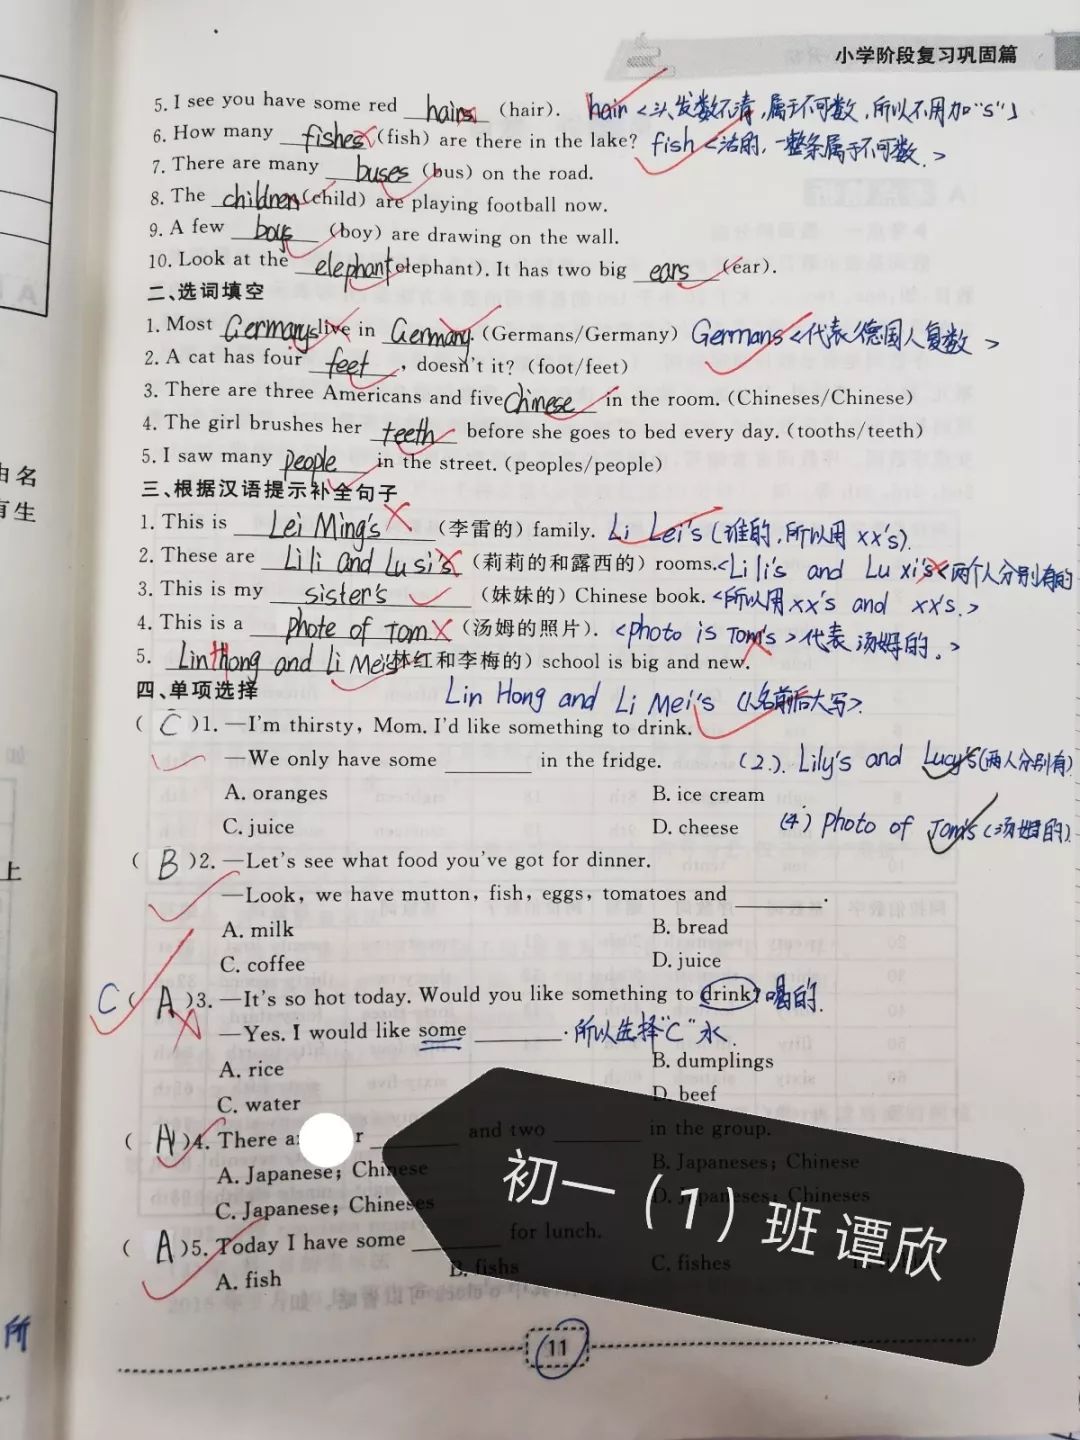 小学阶段复习巩固篇
5. I see you have some red hairs (hair). hair <头发数不清,属于不可数,所以不用加"s"」
6. How many fishes (fish) are there in the lake? fish <活的,一整条属于不可数.>
7. There are many buses (bus) on the road.
8. The children (child) are playing football now.
9. A few boys (boy) are drawing on the wall.
10. Look at the elephant (elephant). It has two big ears (ear).
二、选词填空
1. Most Germanys live in Germany. (Germans/Germany) Germans <代表德国人复数 >
2. A cat has four feet, doesn't it? (foot/feet)
3. There are three Americans and five Chinese in the room. (Chineses/Chinese)
4. The girl brushes her teeth before she goes to bed every day. (tooths/teeth)
5. I saw many people in the street. (peoples/people)
三、根据汉语提示补全句子
1. This is Lei Ming's (李雷的) family. Li Lei's (谁的,所以用 xx's).
2. These are Lili and Lusi's (莉莉的和露西的) rooms. <Lili's and Lu xi's <两个人分别有的
3. This is my sister's (妹妹的) Chinese book. <所以用xx's and xx's.>
4. This is a phote of Tom. (汤姆的照片). <photo is Tom's >代表 汤姆的.>
5. Lin Hong and Li Mei's (林红和李梅的) school is big and new.
四、单项选择 Lin Hong and Li Mei's
( C )1. —I'm thirsty, Mom. I'd like something to drink.
—We only have some ______ in the fridge. (2.). Lily's and Lucy's (两人分别有)
A. oranges B. ice cream
C. juice D. cheese (4) photo of Tom's (汤姆的).
( B )2. —Let's see what food you've got for dinner.
—Look, we have mutton, fish, eggs, tomatoes and ______.
A. milk B. bread
C. coffee D. juice
C ( A )3. —It's so hot today. Would you like something to drink? 喝的.
—Yes. I would like some ______. 所以选择"C"水.
A. rice B. dumplings
C. water D. beef
( A )4. There a r ______ and two ______ in the group.
A. Japanese; Chinese B. Japaneses; Chinese
C. Japanese; Chineses D. Japaneses; Chineses
( A )5. Today I have some ______ for lunch.
A. fish B. fishs C. fishes
初一（1）班 谭欣
11
由名
有生
上
所